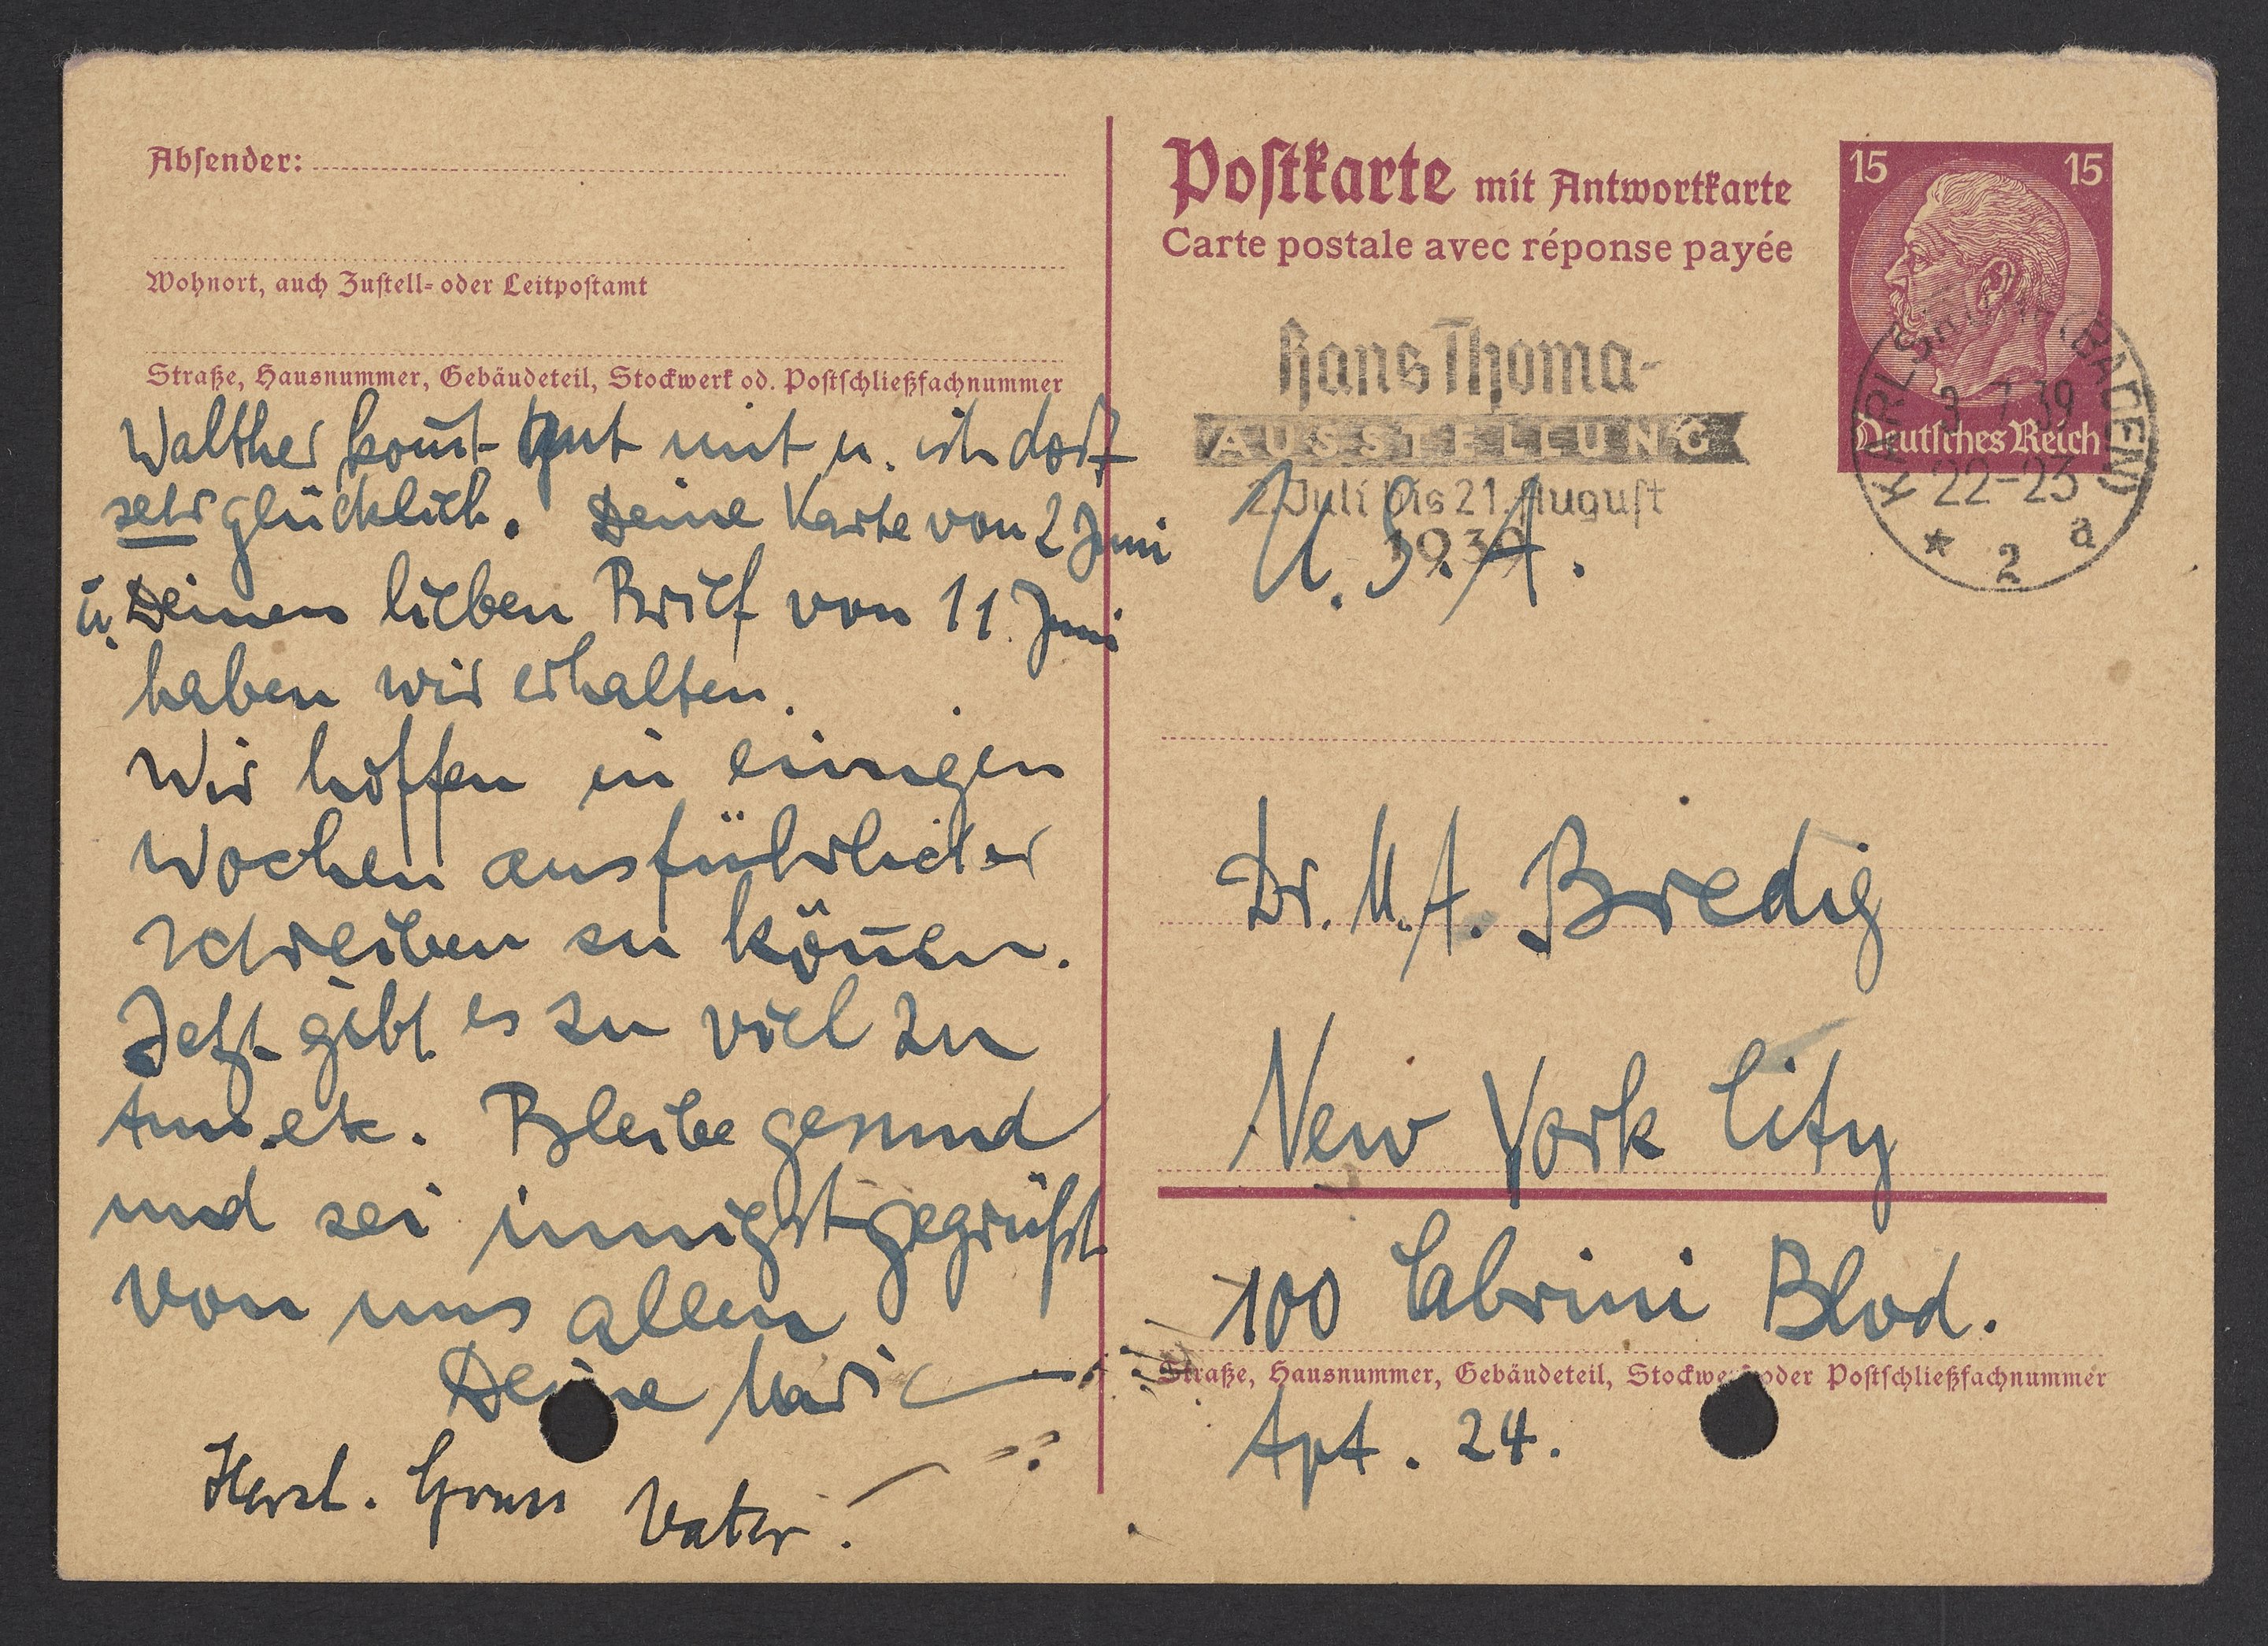 Absender:
Wohnort, auch Zustell- oder Leitpostamt
Straße, Hausnummer, Gebäudeteil, Stockwerk od. Postschließfachnummer
Walther kom̄t gut mit u. ist dort
sehr glücklich. Deine Karte von 2 Juni
u. Deinen lieben Brief von 11. Juni
haben wir erhalten.
Wir hoffen in einigen
Wochen ausführlicher
schreiben zu kön̄en.
Jetzt gibt es zu viel zu
tun etc. Bleibe gesund
und sei innigst gegrüßt
von uns allen
Deine Mari
Herzl. Gruss Vater.
Postkarte mit Antwortkarte
Carte postale avec réponse payée
15 15
Deutsches Reich
Hans Thoma-
AUSSTELLUNG
2. Juli bis 21. August
1939
KARLSRUHE (BADEN)
3.7.39
22-23
* 2 a
U.S.A.
Dr. M.A. Bredig
New York City
100 Cabrini Blvd.
Straße, Hausnummer, Gebäudeteil, Stockwerk oder Postschließfachnummer
Apt. 24.